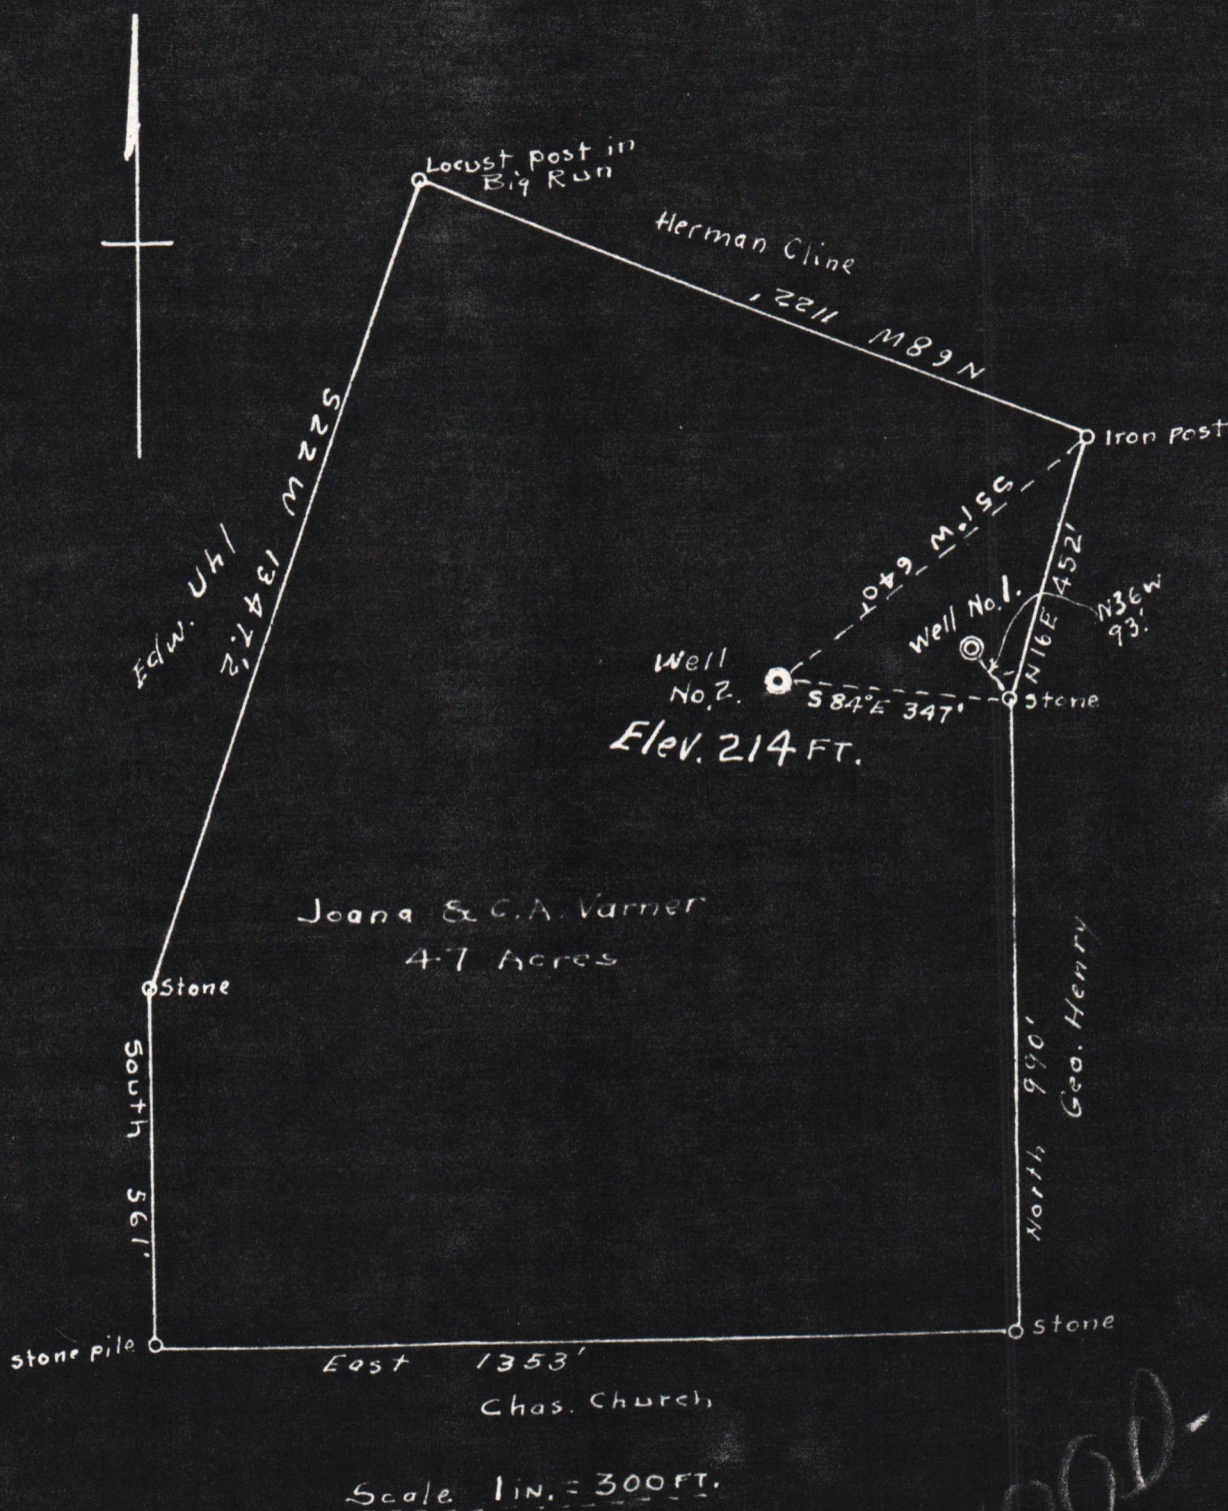 Locust post in
Big Run
Herman Cline
N68W 1122'
Iron post
S22W 1347.'2
S51°W 640'
N16E 452'
Well No.1.
N36W
93.'
Well
No.2.
S84°E 347'
stone
Elev. 214 FT.
Edw.
Joana & C.A. Varner
47 Acres
Stone
South 561'
North 990'
Geo. Henry
stone pile
stone
East 1353'
Chas. Church
Scale 1 IN. = 300 FT.